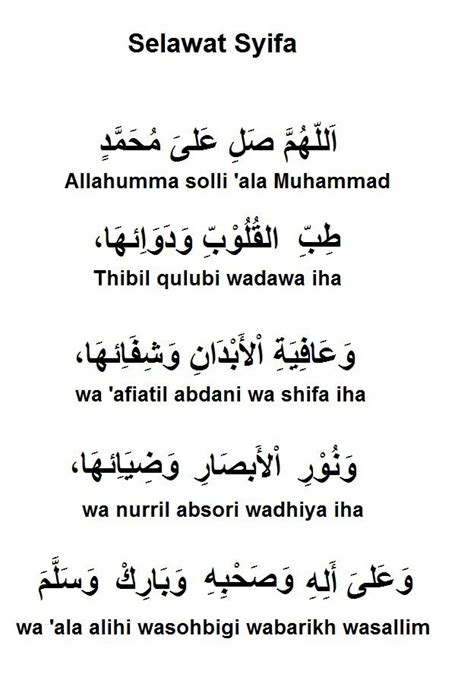 Selawat Syifa
اَللّهُمَّ صَلِ عَلىَ مُحَمَّدٍ
Allahumma solli 'ala Muhammad
طِبِّ القُلُوْبِّ وَدَوَاِئهَا،
Thibil qulubi wadawa iha
وَعَافِيَةِ اْلأَبْدَانِ وَشِفَاِئهَا،
wa 'afiatil abdani wa shifa iha
وَنُوْرِ اْلأَبصَارِ وَضِيَاِئهَا،
wa nurril absori wadhiya iha
وَعَلىَ أَلِهِ وَصَحْبِهِ وَبَارِكْ وَسَلَّمَ
wa 'ala alihi wasohbigi wabarikh wasallim